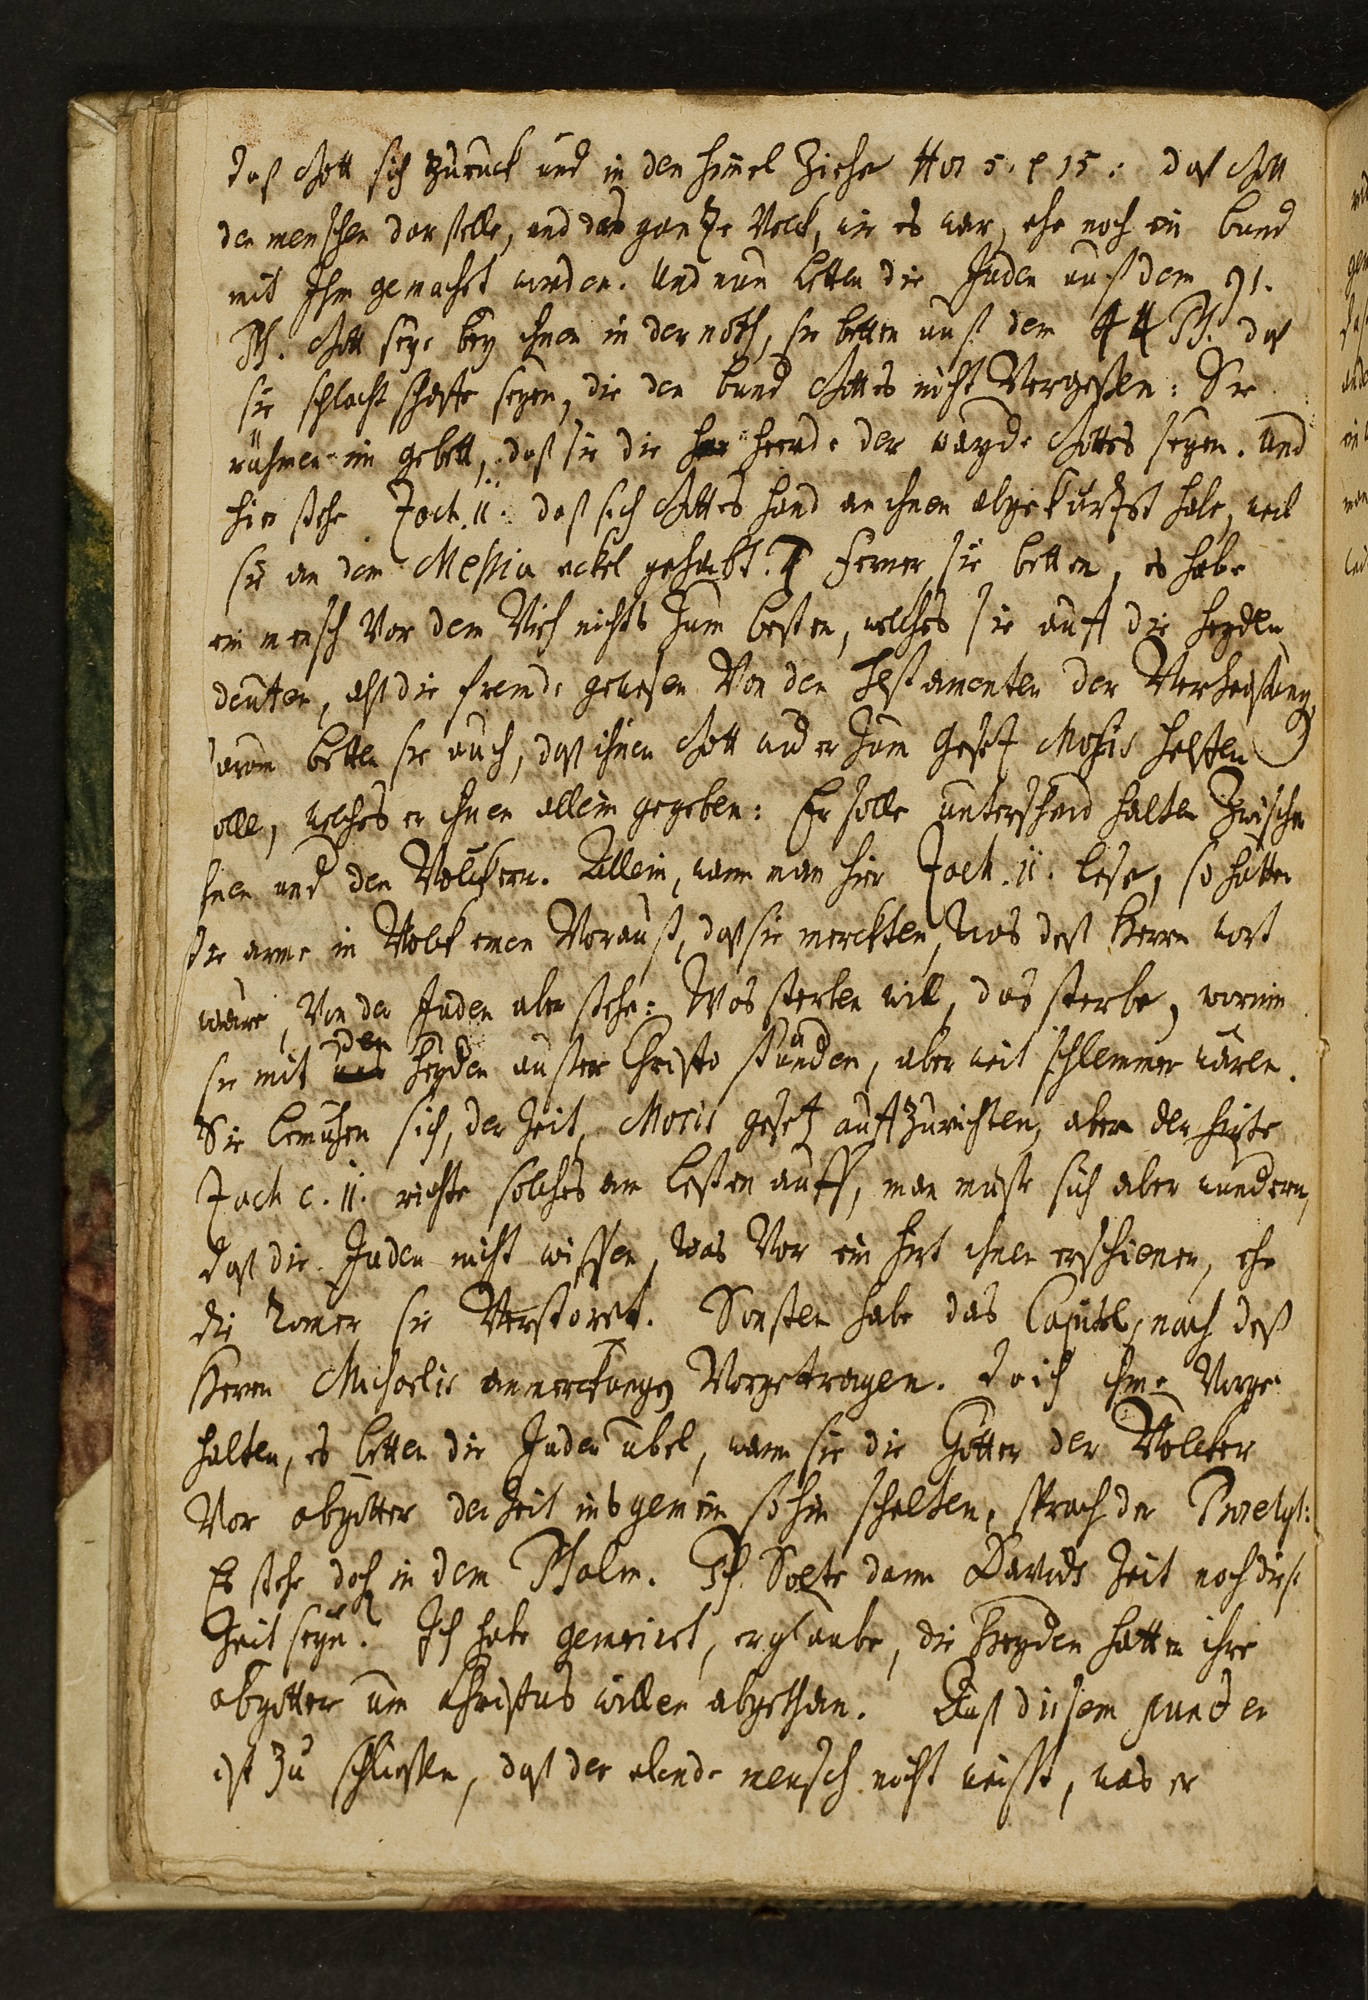 daß Gott sich zuruck und in den himel ziehe Hos 5. v 15: daß Gott
den menschen darstelle, und das gantze Volck, wie es war, ehe noch ein bund
mit Ihm gemacht worden. Und nun betten die Juden auß dem 91.
Ps. Gott seye bey ihnen in der noth, sie betten auß dem 44 Ps. daß
sie schlacht schaffe seyen, die den bund Gottes nicht Vergeßen: Sie
rühmen im gebett, daß sie die heerde der wayde Gottes seyen. Und
hier stehe Zach. 11. daß sich Gottes hand an ihnen abgekürtzt habe, weil
sie an dem Messia eckel gehabt. Ferner, sie betten, es habe
ein mensch Vor dem Vieh nichts zum besten, welches sie auff die heyden
deuten, alß die fremde gewesen Von den Testamenten der Verheißung,
arum betten sie auch, daß ihnen Gott wider zum Gesetz Mosis helffen
olle, welches er ihnen allein gegeben: Er solle unterscheid halten zwischen
hnen und den Völckern. Allein, wann man hier Zach. 11. lese, so hätten
die arme im Volck einen Vorauß, daß sie merckten, was deß Herrn wort
wäre, Von den Juden aber stehe: Was sterben will, das sterbe, worinn
sie mit den heyden ausser Christo stünden, aber weit schlemmer wären.
Sie bemühen sich, der Zeit, Mosis gesetz auffzurichten, aber der hirte
Zach c. 11. richte solches am besten auff, man müste sich aber wundern,
daß die Juden nicht wissen, was Vor ein hirt ihnen erschienen, ehe
die Romer sie Verstöret. Sonsten habe das Capitel, nach deß
Herrn Michaelis anmerckungen Vorgetragen. Da ich ihme Vorge
halten, es betten die Juden übel, wann sie die Götter der Völcker
Vor abgötter der Zeit ins gemein so hin schelten, sprach der Proselyt:
Es stehe doch in dem Psalm. Ich. Solte dann Davids Zeit noch diese
Zeit seyn? Ich habe gemeinet, er glaube, die Heyden hatten ihre
abgötter um Christus willen abgethan. Auß diesem puncten
ist zu schließen, daß der elende mensch nicht weiß, was er